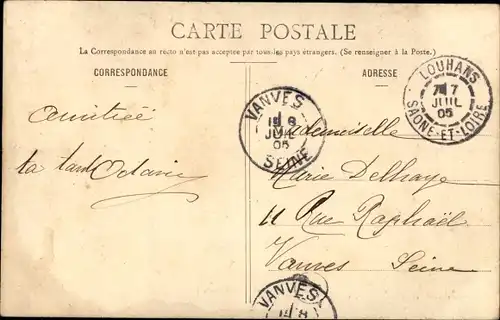 CARTE POSTALE
La Correspondance au recto n'est pas acceptée par tous les pays étrangers. (Se renseigner à la Poste.)
CORRESPONDANCE
ADRESSE
LOUHANS
7 JUIL
05
SAONE-ET-LOIRE
VANVES
8
JUIL
05
SEINE
amitiée
ta tante Octavie
Mademoiselle
Marie Delhaye
11 Rue Raphaël
Vanves Seine
VANVES
8